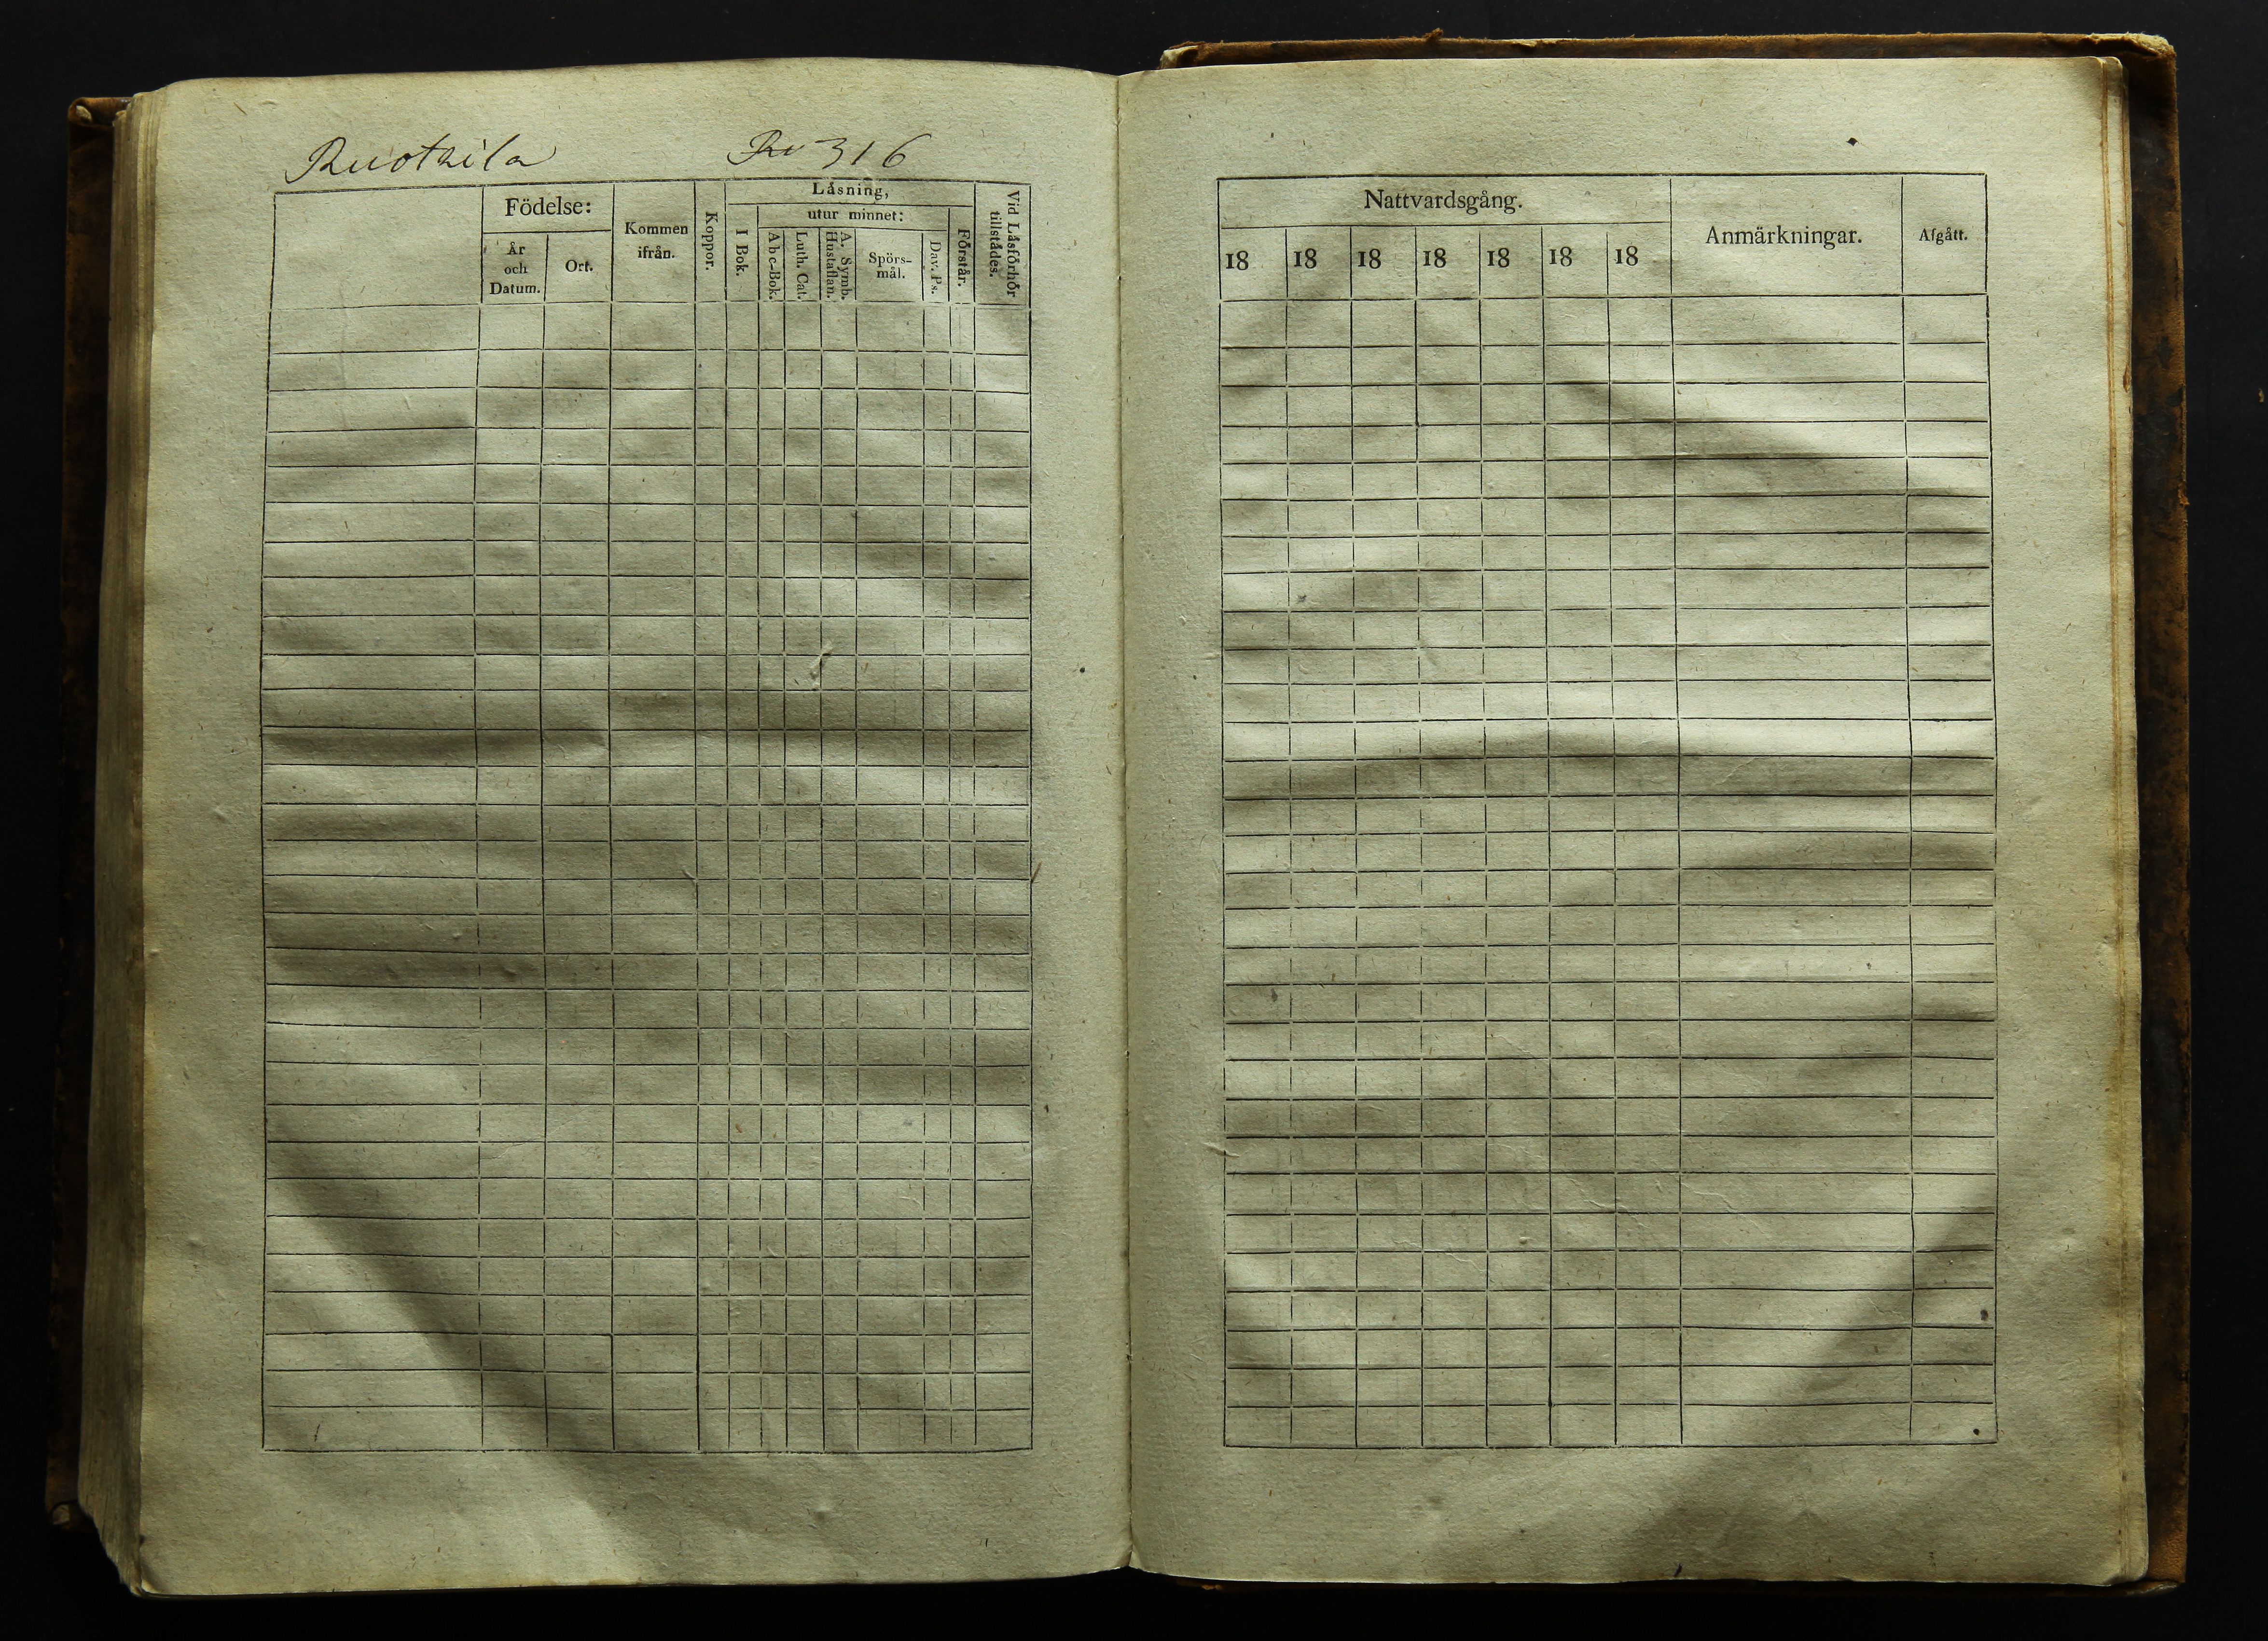 Ruotzila
316
Födelse:
År
och
Datum.
Ort.
Kommen
ifrån.
Koppor.
Läsning,
I Bok.
utur minnet:
Abc-Bok.
Luth. Cat.
A. Symb.
Hustaflan.
Spörs-
mål.
Dav. Ps.
Förstår.
Vid Läsförhör
tillstädes.
Nattvardsgång.
18 18 18 18 18 18 18
Anmärkningar.
Afgått.